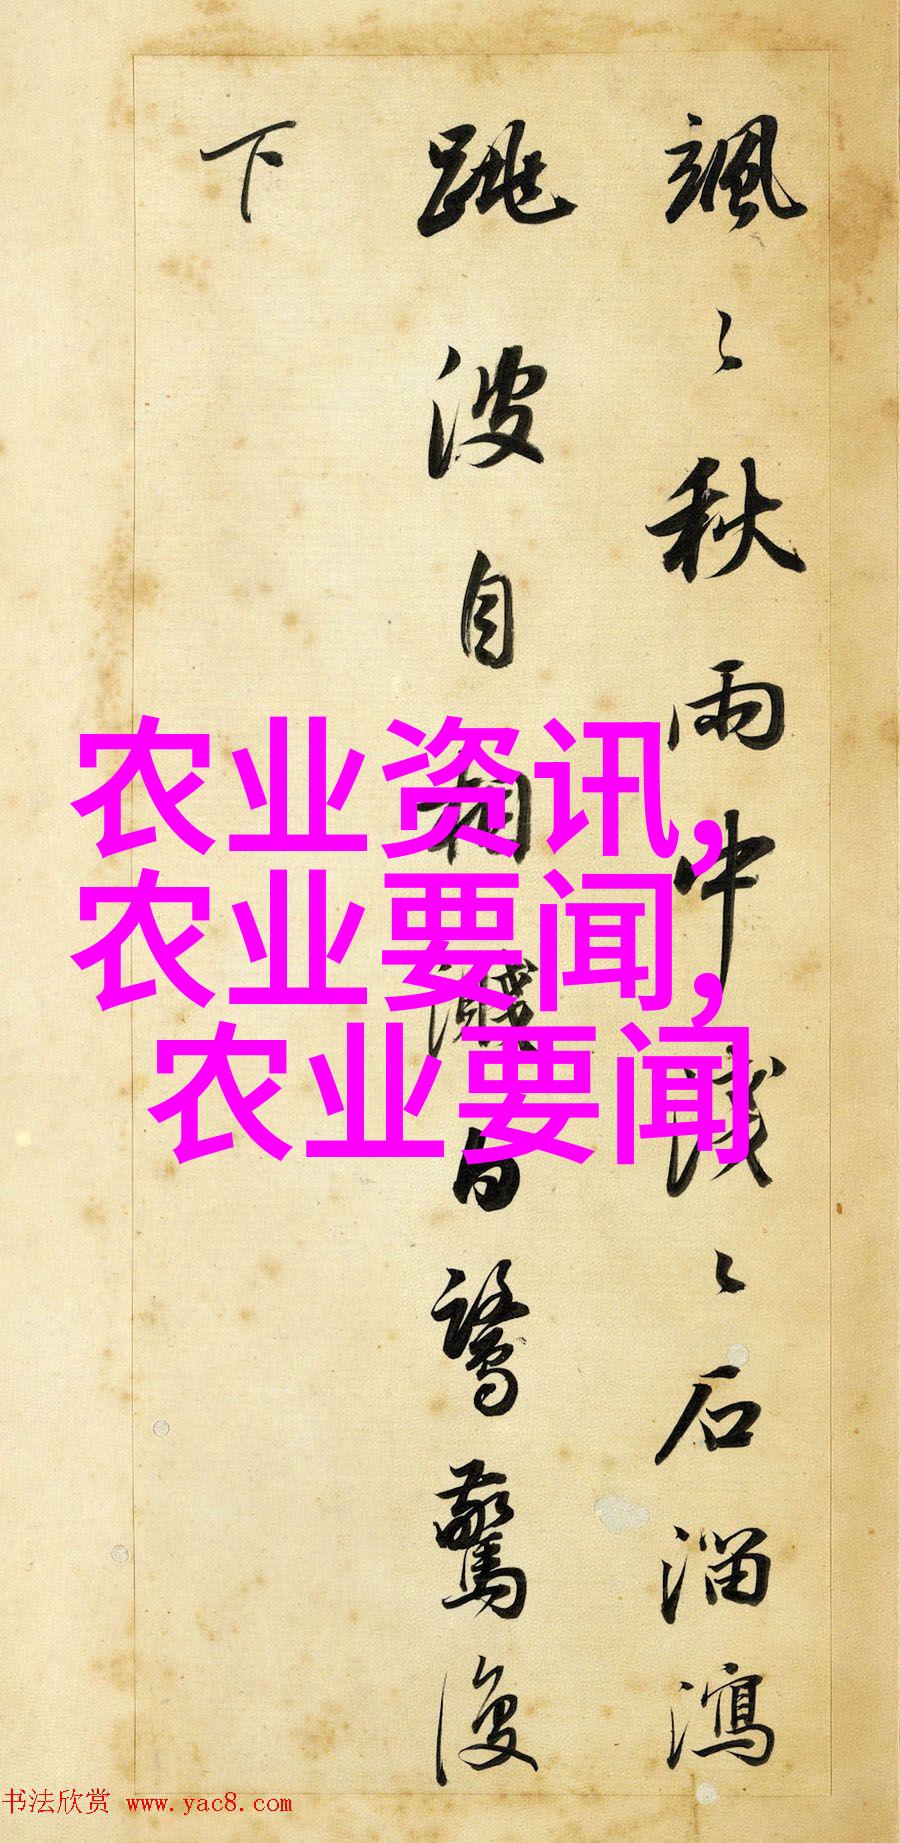 颯〻秋雨中淺〻石溜瀉
跳波自相濺白鷺驚復
下
农业资讯,
农业要闻,
农业要闻
书法欣赏 www.yac8.com